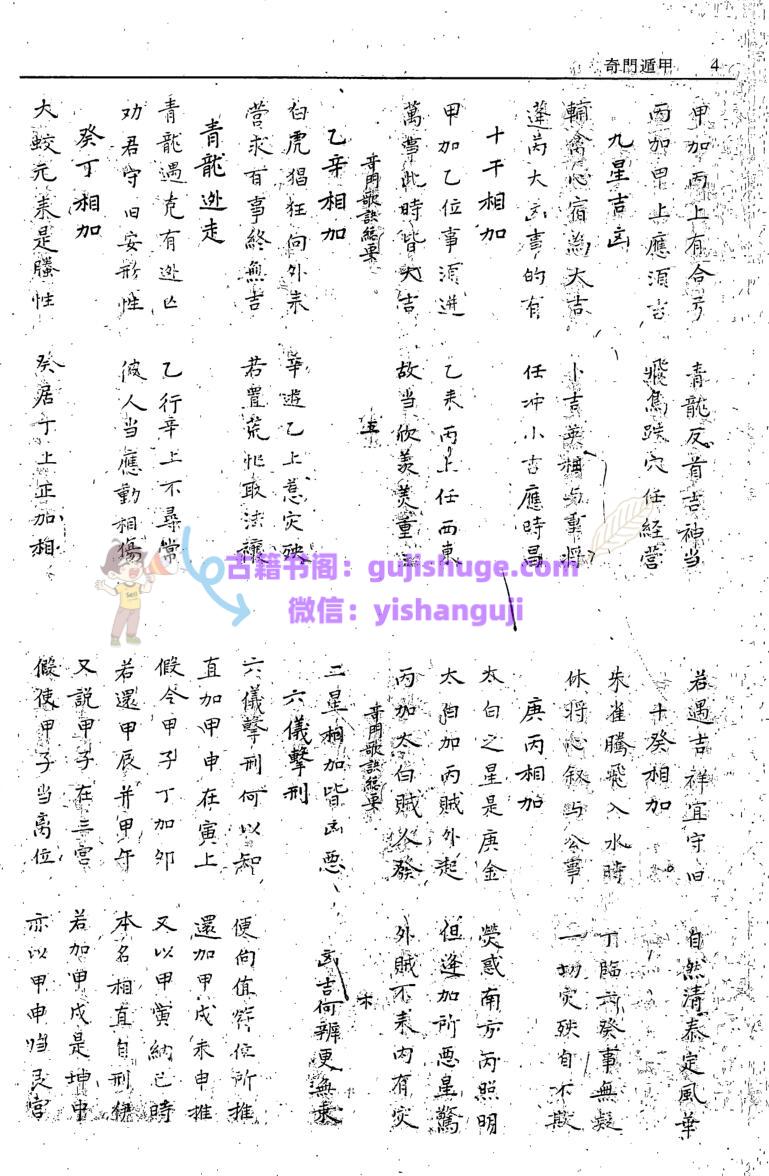 奇門遁甲 4
甲加丙上有合亏 青龍反首吉神当
丙加甲上應須吉 飛鳥跌穴任經营
九星吉凶
輔禽心宿為大吉 小吉英 与事将
蓬芮大凶事的有 任冲小吉應時昌
十干相加
甲加乙位事須进 乙来丙上任西東
萬事此時皆大吉 故当欣羡羡重
奇門歌訣總要 五
乙辛相加
白虎猖狂向外来 辛遊乙上惹灾殃
营求百事終無吉 若置荒忙取法禳
青龍逃走
青龍遇克有逃亡 乙行辛上不尋常
劝君守旧安形性 彼人当應動相傷
癸丁相加
大蛟元来是騰性 癸居丁上正加相
若遇吉祥宜守旧 自然清泰定風華
十癸相加
朱雀騰飛入水時 丁臨六癸事無疑
休将心叙与公事 一切灾殃自不欺
庚丙相加
太白之星是庚金 熒惑南方丙照明
太白加丙賊外起 但逢加所惡星驚
丙加太白賊人發 外賊不来内有灾
奇門歌訣總要 六
二星相加皆凶惡 凶吉何辨更無求
六儀擊刑
六儀擊刑何以知 便向值符位所推
直加甲申在寅上 還加甲戌未申推
假令甲子丁加卯 又以甲寅納巳時
若還甲辰并甲午 本名相直自刑
又説甲子在三宮 若加甲戌是坤中
假使甲子当离位 亦以甲申临艮宮
古籍书阁：gujishuge.com
微信：yishanguji